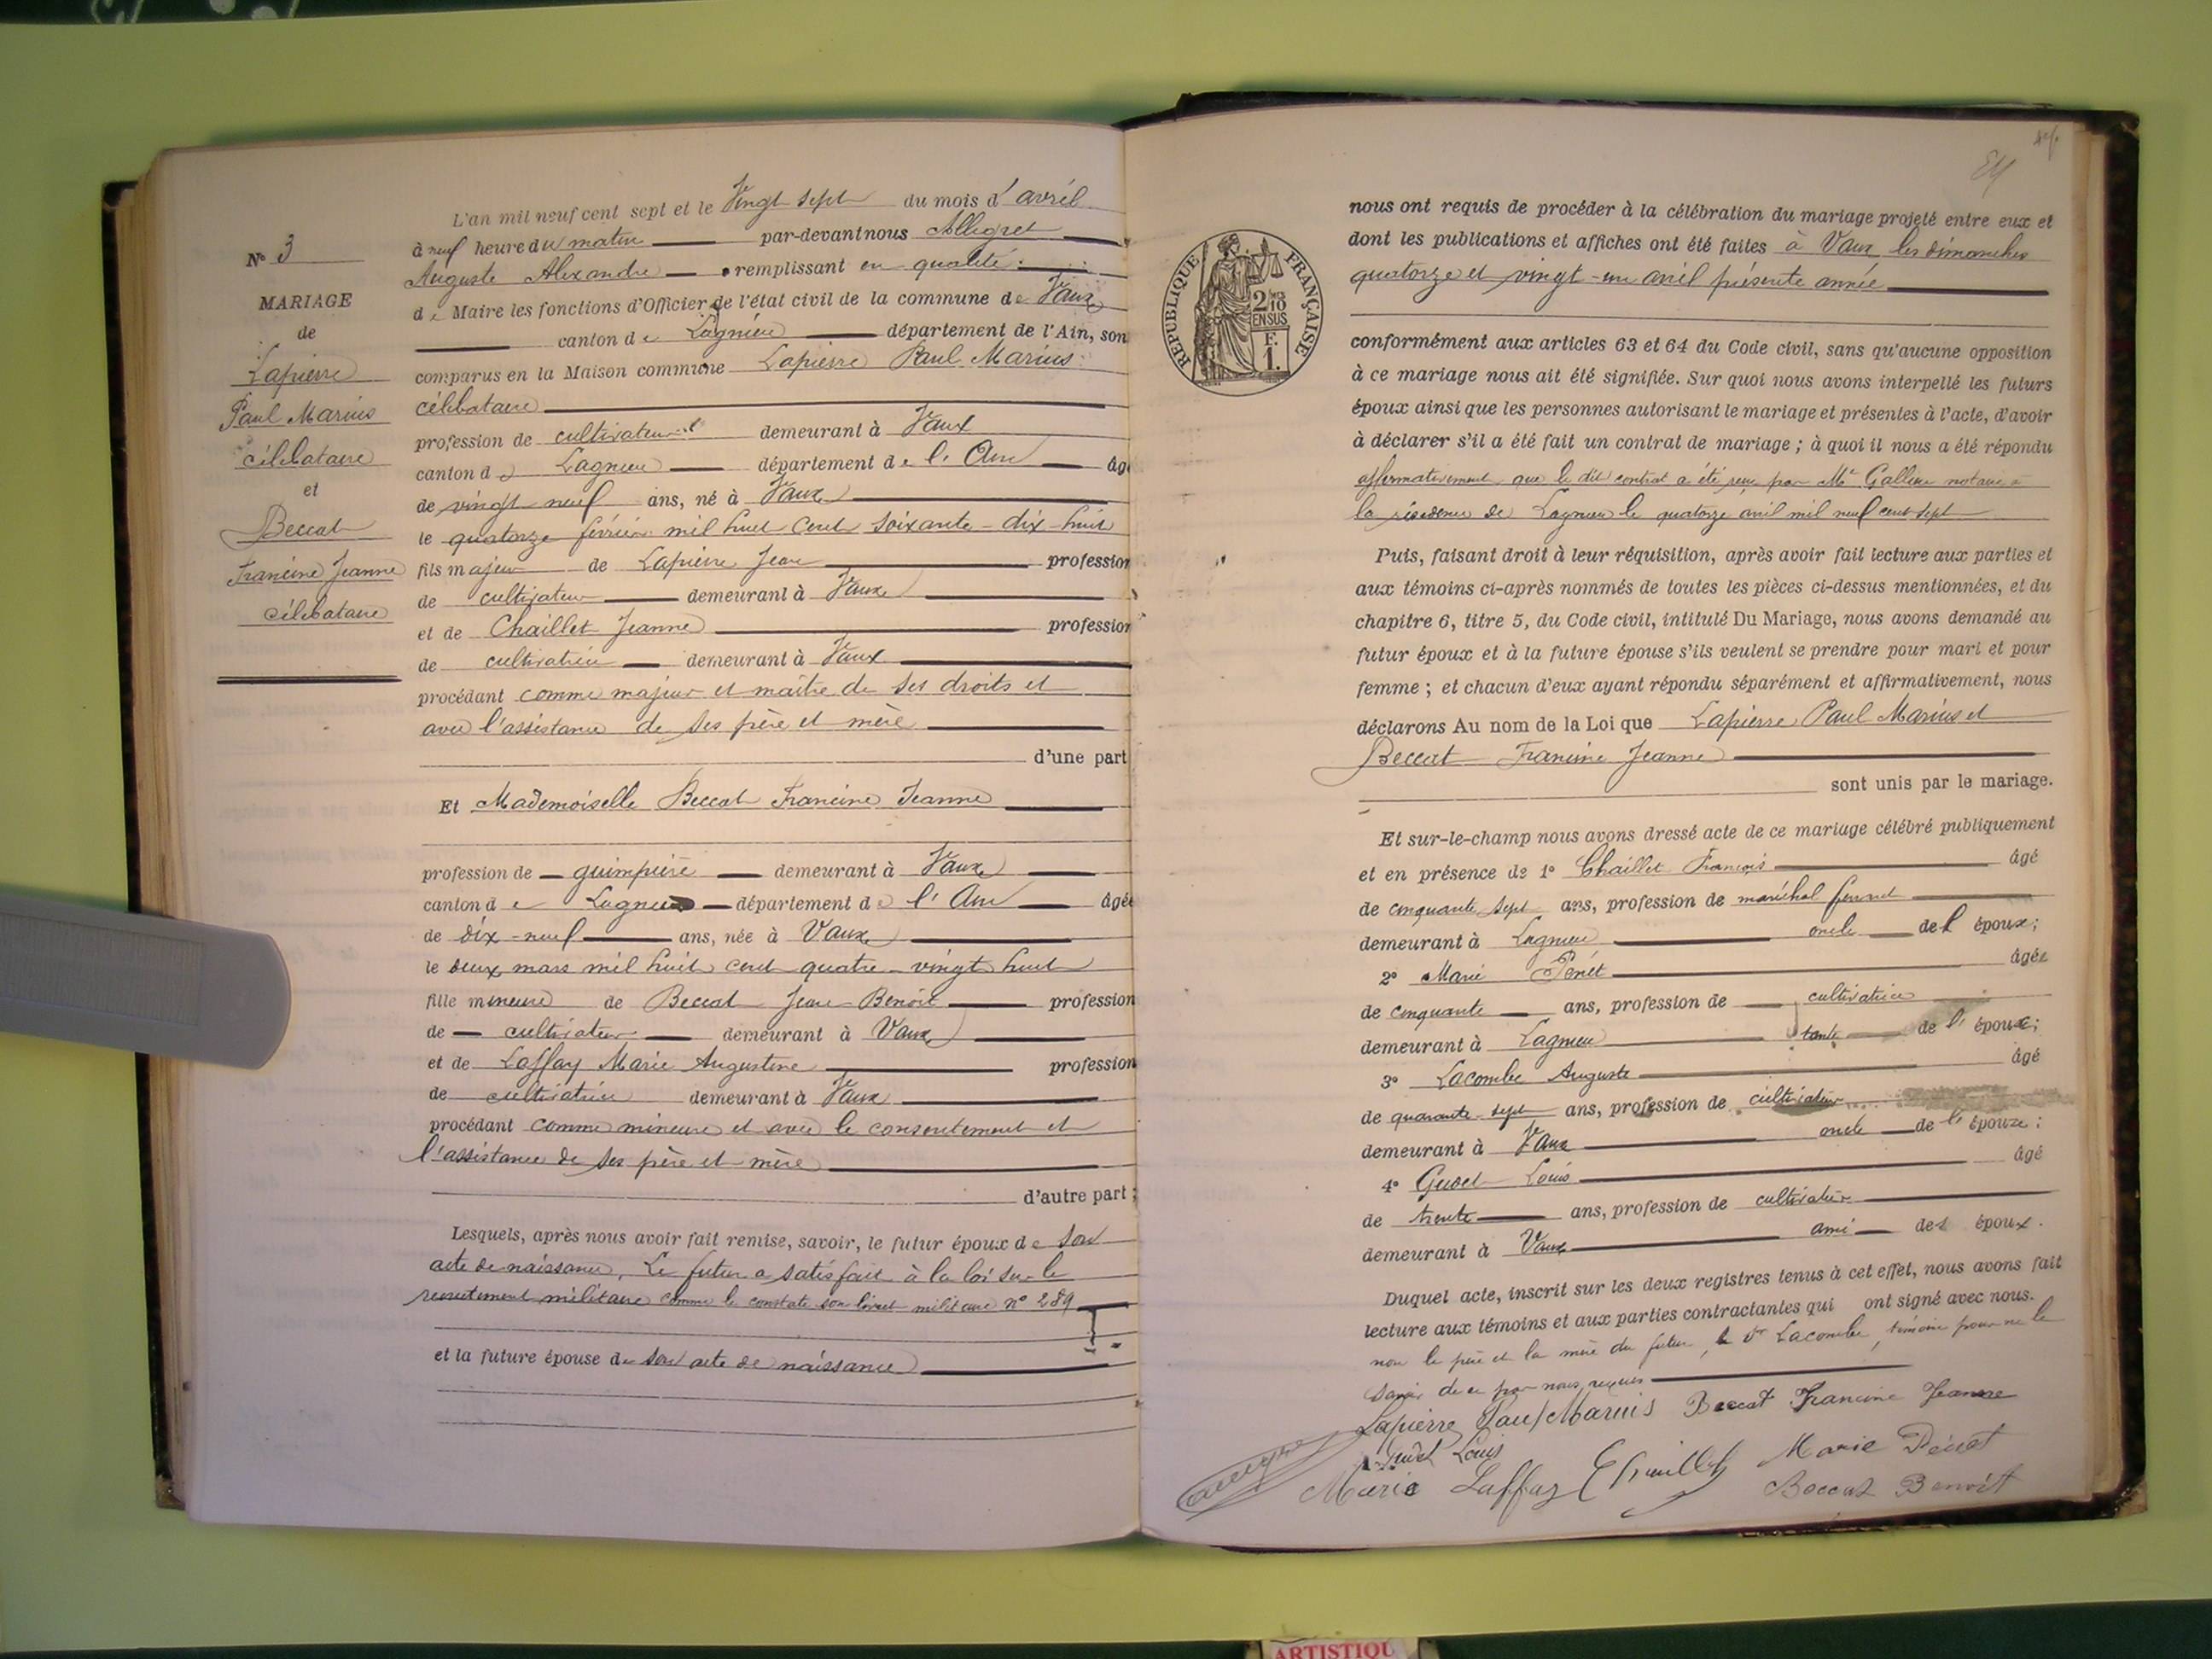 N° 3
MARIAGE
de
Lapierre
Paul Marius
célibataire
et
Beccat
Francine Jeanne
célibataire
L'an mil neuf cent sept et le Vingt sept du mois d'avril
à neuf heure du matin par-devant nous Allegret
Auguste Alexandre remplissant en qualité
de Maire les fonctions d'Officier de l'état civil de la commune de Vaux
canton de Lagnieu département de l'Ain, son
comparus en la Maison commune Lapierre Paul Marius
célibataire
profession de cultivateur demeurant à Vaux
canton de Lagnieu département de l'Ain âg
de vingt neuf ans, né à Vaux
le quatorze février mil huit cent soixante-dix-huit
fils majeur de Lapierre Jean profession
de cultivateur demeurant à Vaux
et de Chaillet Jeanne profession
de cultivatrice demeurant à Vaux
procédant comme majeur et maître de ses droits et
avec l'assistance de ses père et mère
d'une part
Et Mademoiselle Beccat Francine Jeanne
profession de guimpière demeurant à Vaux
canton de Lagnieu département de l'Ain âgée
de dix-neuf ans, née à Vaux
le deux mars mil huit cent quatre-vingt huit
fille mineure de Beccat Jean-Benoit profession
de cultivateur demeurant à Vaux
et de Laffay Marie Augustine profession
de cultivatrice demeurant à Vaux
procédant comme mineure et avec le consentement et
l'assistance de ses père et mère
d'autre part ;
Lesquels, après nous avoir fait remise, savoir, le futur époux de son
acte de naissance, Le futur a satisfait à la loi sur le
recrutement militaire comme le constate son livret militaire n° 289
et la future épouse de son acte de naissance
RÉPUBLIQUE FRANÇAISE
2/10
EN SUS
F.
1.
nous ont requis de procéder à la célébration du mariage projeté entre eux et
dont les publications et affiches ont été faites à Vaux les dimanches
quatorze et vingt-un avril présente année
conformément aux articles 63 et 64 du Code civil, sans qu'aucune opposition
à ce mariage nous ait été signifiée. Sur quoi nous avons interpellé les futurs
époux ainsi que les personnes autorisant le mariage et présentes à l'acte, d'avoir
à déclarer s'il a été fait un contrat de mariage ; à quoi il nous a été répondu
affirmativement que le dit contrat a été reçu par Me notaire à
la résidence de Lagnieu le quatorze avril mil neuf cent sept
Puis, faisant droit à leur réquisition, après avoir fait lecture aux parties et
aux témoins ci-après nommés de toutes les pièces ci-dessus mentionnées, et du
chapitre 6, titre 5, du Code civil, intitulé Du Mariage, nous avons demandé au
futur époux et à la future épouse s'ils veulent se prendre pour mari et pour
femme ; et chacun d'eux ayant répondu séparément et affirmativement, nous
déclarons Au nom de la Loi que Lapierre Paul Marius et
Beccat Francine Jeanne
sont unis par le mariage.
Et sur-le-champ nous avons dressé acte de ce mariage célébré publiquement
et en présence de 1° Chaillet François âgé
de cinquante sept ans, profession de maréchal ferrant
demeurant à Lagnieu oncle de l'époux ;
2° Marie Pénet âgée
de cinquante ans, profession de cultivatrice
demeurant à Lagnieu tante de l'époux ;
3° Lacombe Auguste âgé
de quarante-sept ans, profession de cultivateur
demeurant à Vaux oncle de l'épouse ;
4° Gudet Louis âgé
de trente ans, profession de cultivateur
demeurant à Vaux ami des époux.
Duquel acte, inscrit sur les deux registres tenus à cet effet, nous avons fait
lecture aux témoins et aux parties contractantes qui ont signé avec nous.
non le père et la mère du futur, le Sr Lacombe, témoin pour ne le
savoir de ce par nous requis
Lapierre Paul Marius Beccat Francine Jeanne
Gudet Louis
Marie Laffay Chaillet Marie Pénet
Beccat Benoît
ARTISTIQU